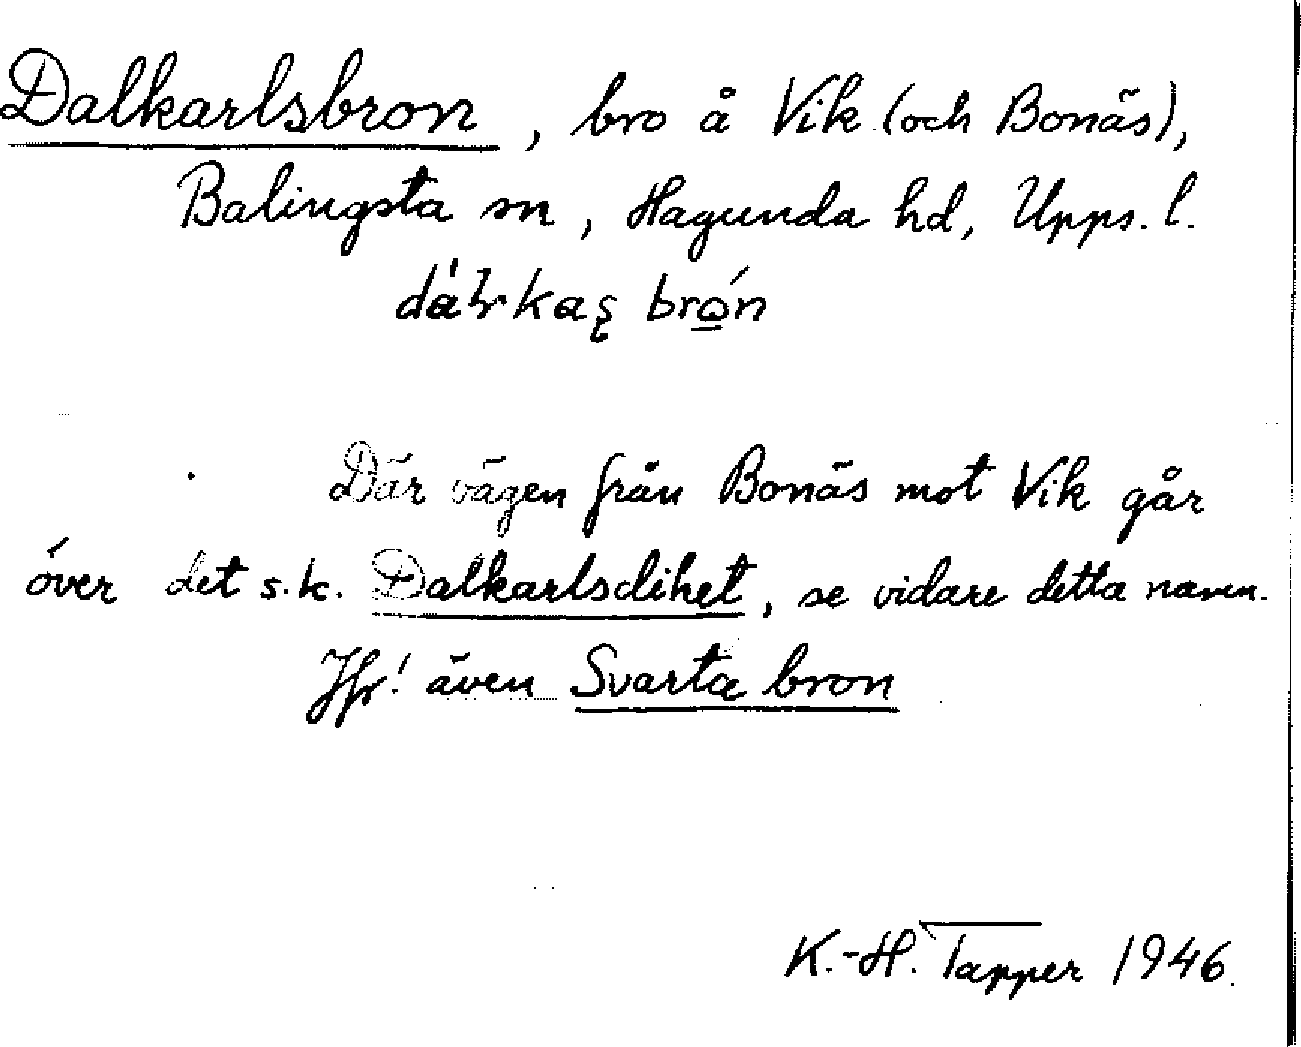 Dalkarlsbron, bro å Vik (och Bonäs),
Balingsta sn, Hagunda hd, Upps. l.
brón
Där vägen från Bonäs mot Vik går
över det s.k. Dalkarlsdiket, se vidare detta namn.
Jfr! även Svarta bron
K.-H. Tapper 1946.